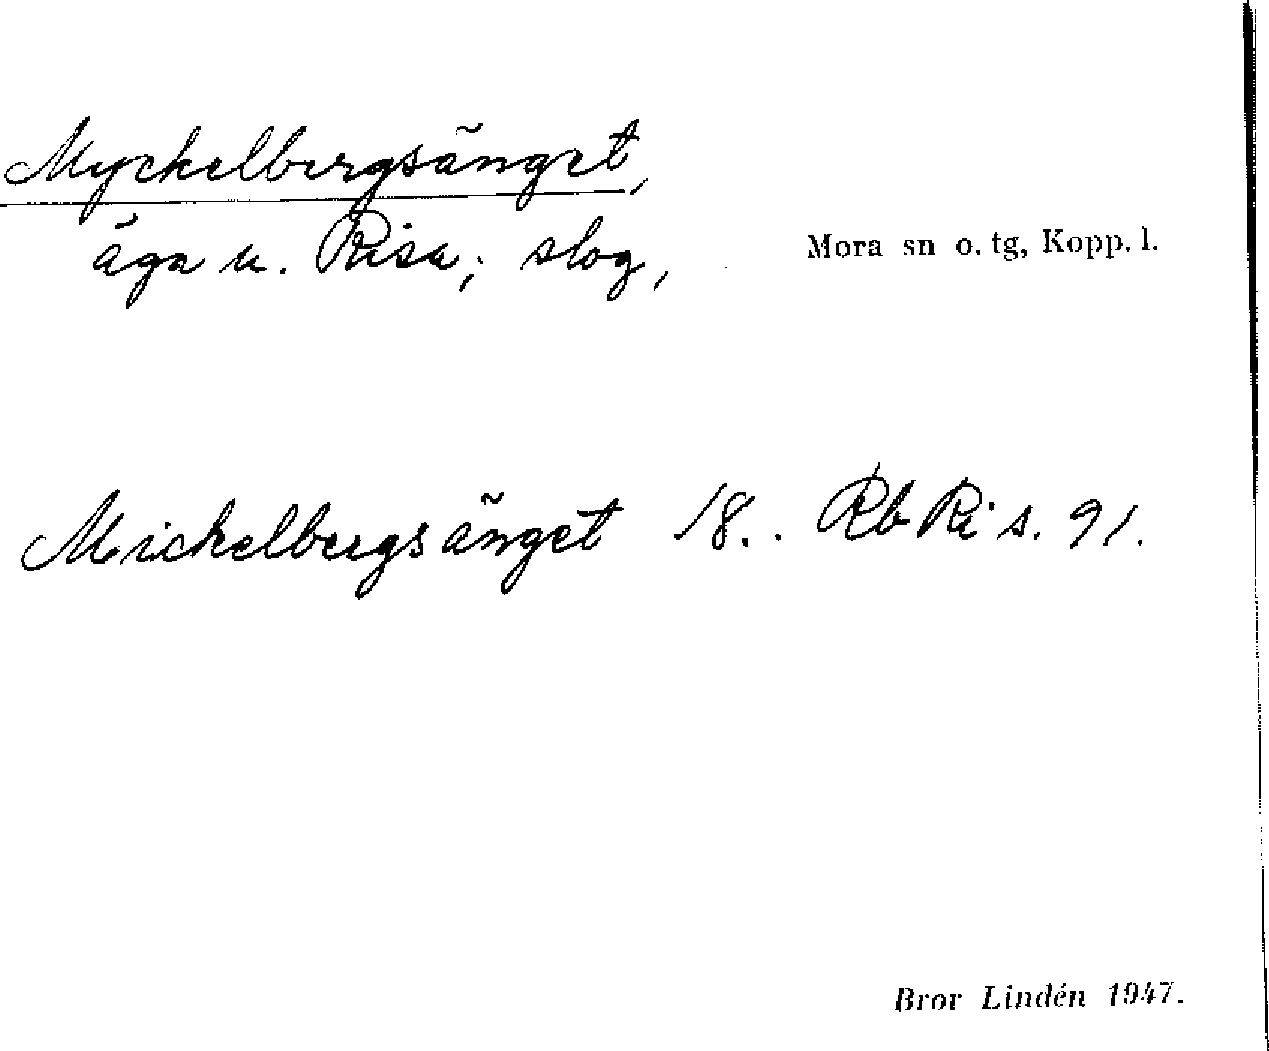 Myckelbergsänget,
äga u. Risa; slog,
Mora sn o. tg, Kopp. l.
Mickelbergsänget 18.. Rb Ri s. 91.
Bror Lindén 1947.